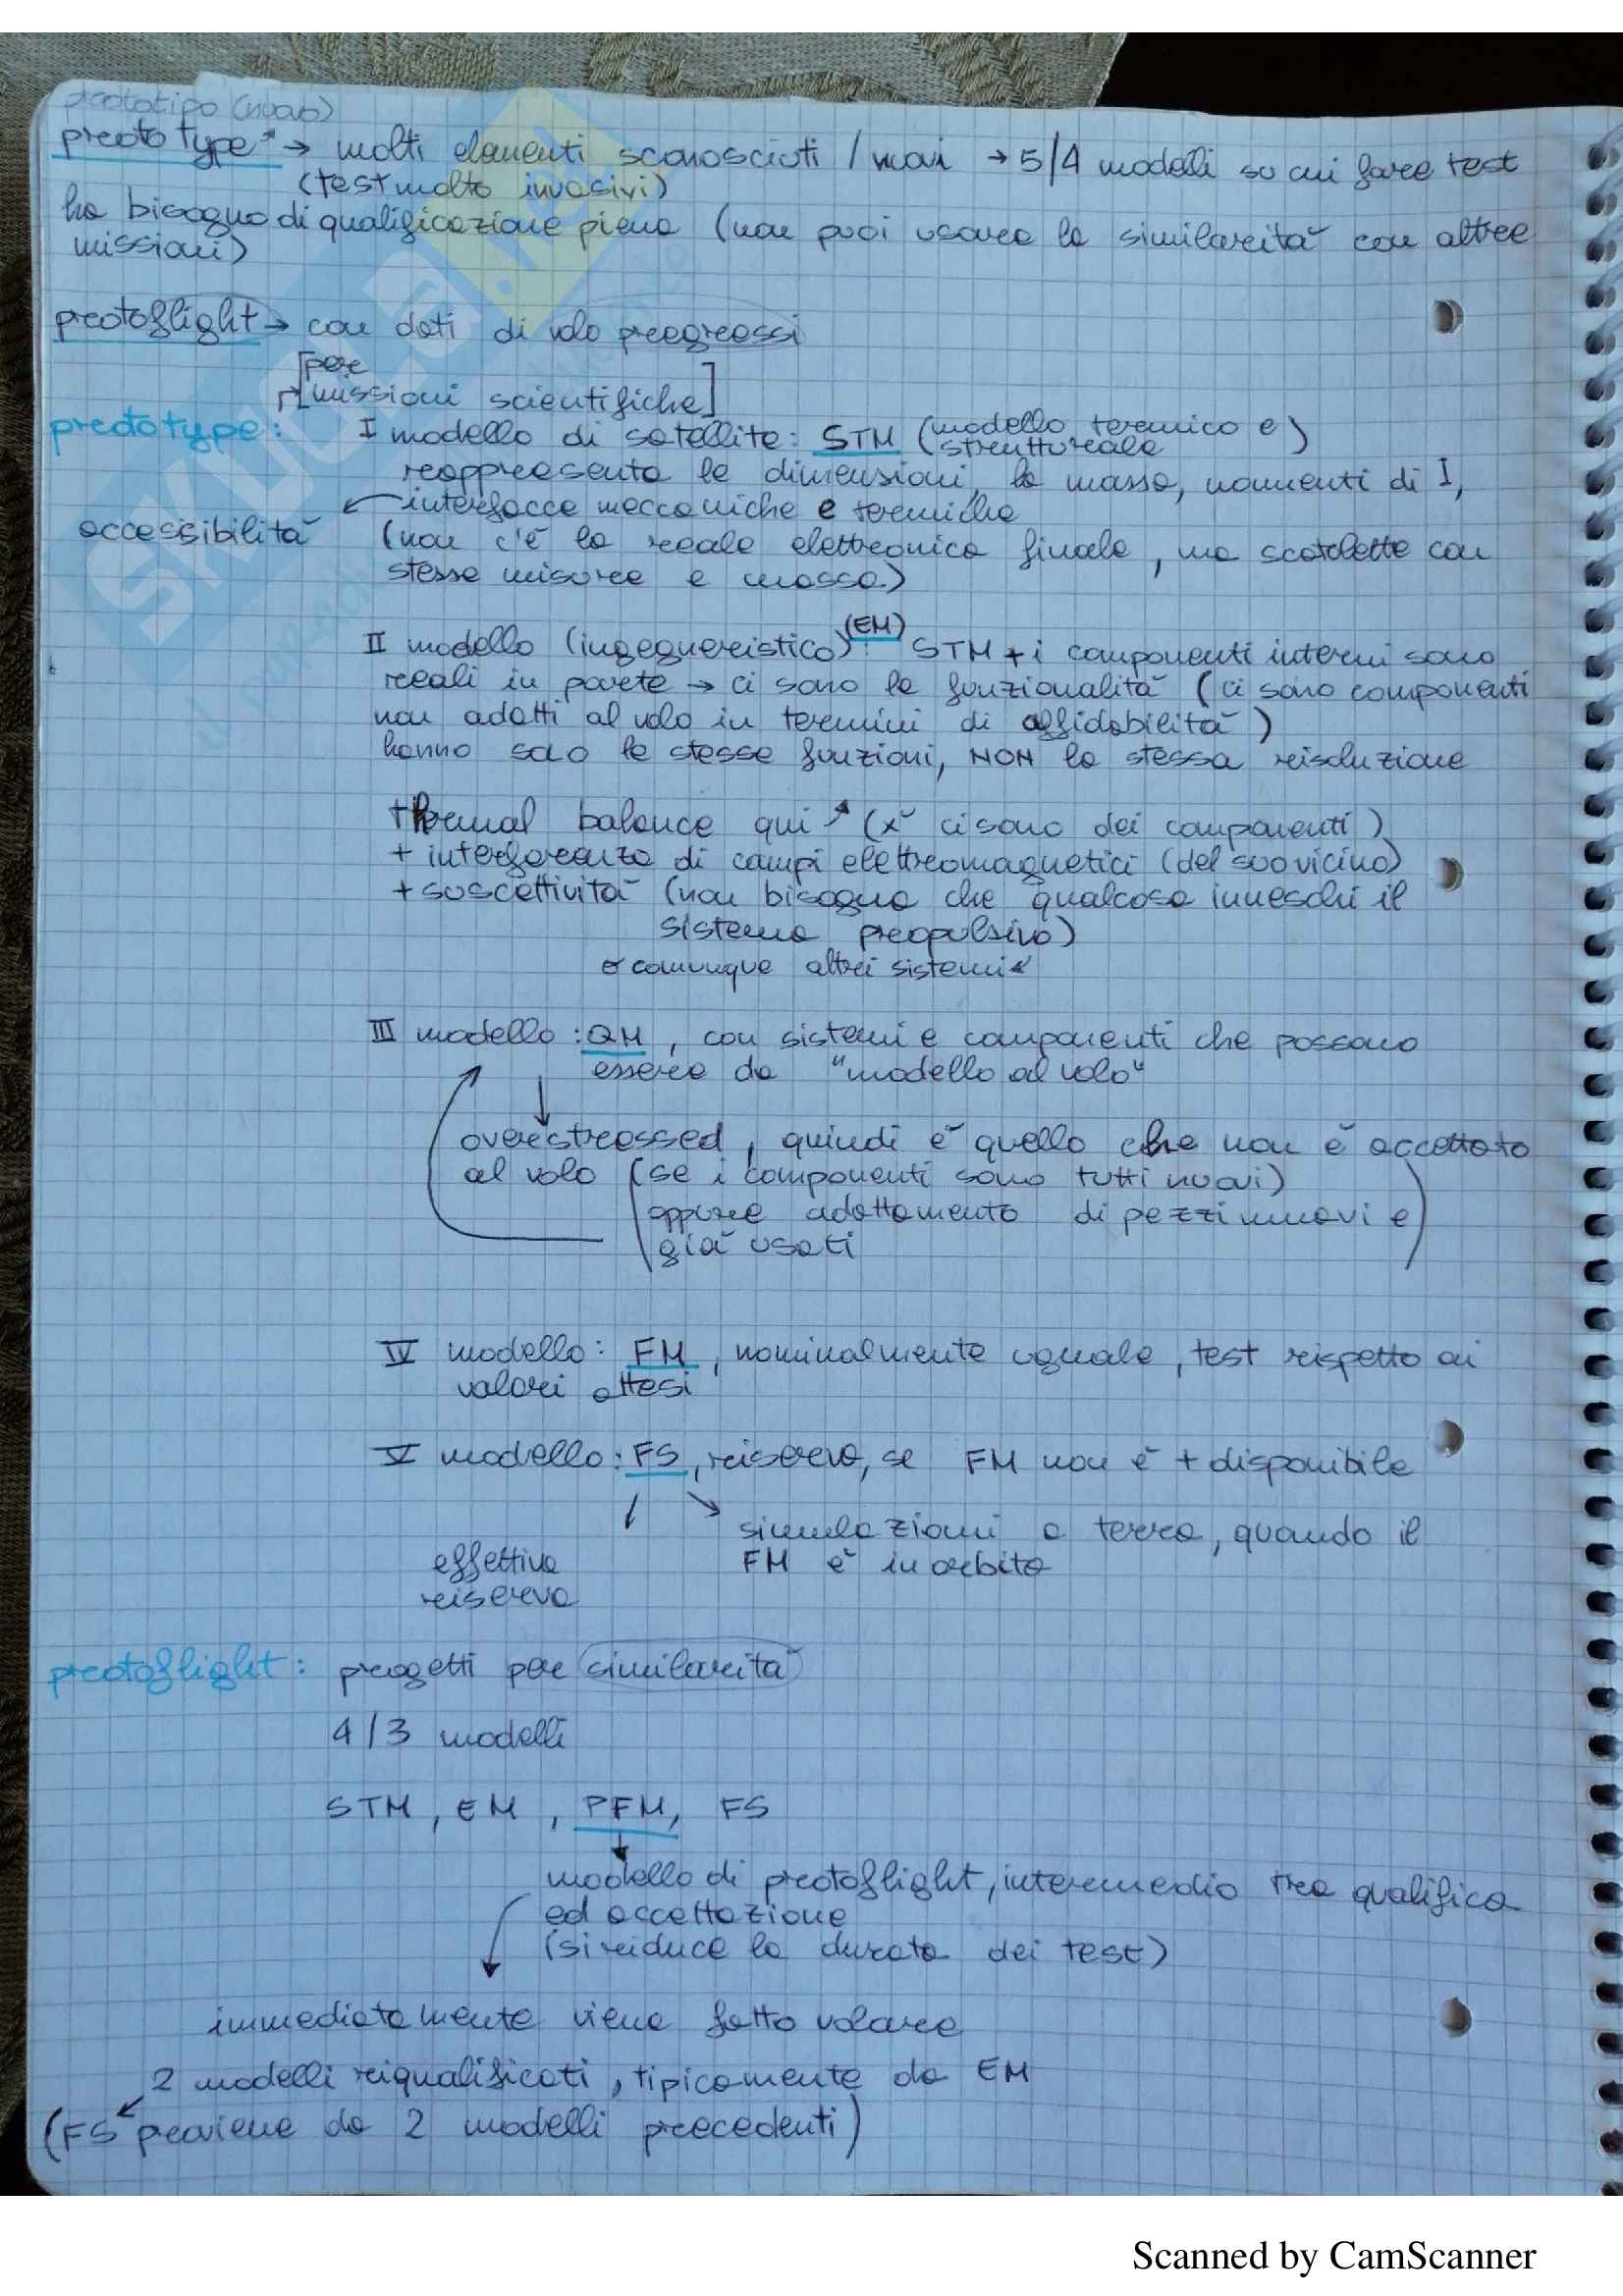 prototipo (nuovo)
prototype → molti elementi sconosciuti / nuovi → 5/4 modelli su cui fare test
(test molto invasivi)
ha bisogno di qualificazione piena (non puoi usare la similarità con altre
missioni)
protoflight → con dati di volo progressi
[per
missioni scientifiche]
prototype: I modello di satellite: STM (modello termico e
strutturale)
rappresenta le dimensioni, la massa, momenti di I,
interfacce meccaniche e termiche
accessibilità (non c'è la reale elettronica finale, ma scatolette con
stesse misure e massa)
II modello (ingegneristico) (EM): STM + i componenti interni sono
reali in parte → ci sono le funzionalità (ci sono componenti
non adatti al volo in termini di affidabilità)
hanno solo le stesse funzioni, NON la stessa risoluzione
thermal balance qui (x ci sono dei componenti)
+ interferenza di campi elettromagnetici (del suo vicino)
+ suscettività (non bisogna che qualcosa inneschi il
sistema propulsivo)
o comunque altri sistemi
III modello: QM, con sistemi e componenti che possono
essere da "modello al volo"
overstressed, quindi è quello che non è accettato
al volo (se i componenti sono tutti nuovi)
oppure adattamento di pezzi nuovi e
già usati
IV modello: FM, nominalmente uguale, test rispetto ai
valori attesi
V modello: FS, riserva, se FM non è + disponibile
simulazioni a terra, quando il
effettiva FM è in orbita
riserva
protoflight: progetti per similarità
4/3 modelli
STM, EM, PFM, FS
modello di protoflight, intermedio tra qualifica
ed accettazione
(si riduce la durata dei test)
immediatamente viene fatto volare
2 modelli riqualificati, tipicamente da EM
(FS proviene da 2 modelli precedenti)
Scanned by CamScanner